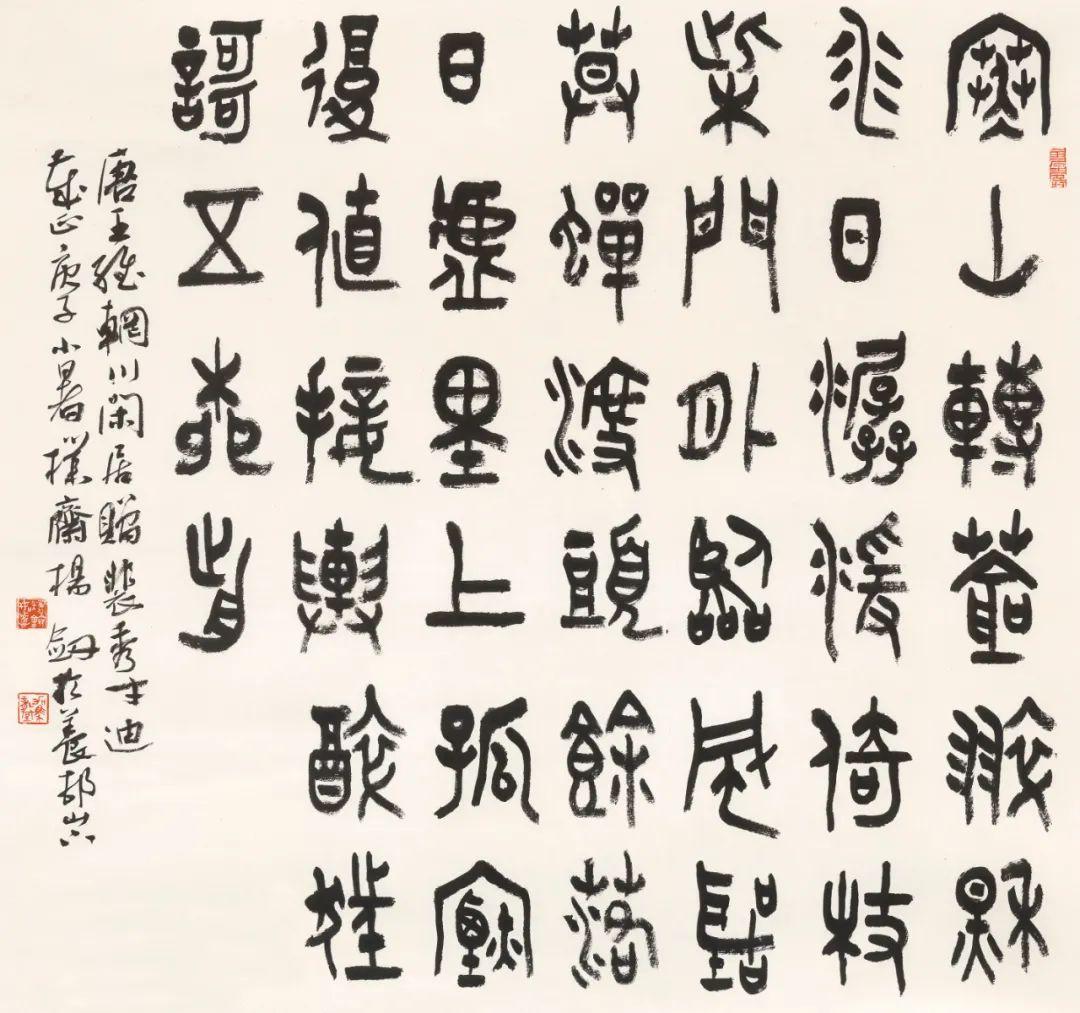 寒山轉蒼翠秋
水日潺湲倚杖
柴門外臨風聽
暮蟬渡頭餘落
日墟里上孤煙
復值接輿醉狂
謌五柳前
唐王維輞川閑居贈裴秀才迪
庚子小暑樸齋楊劍於